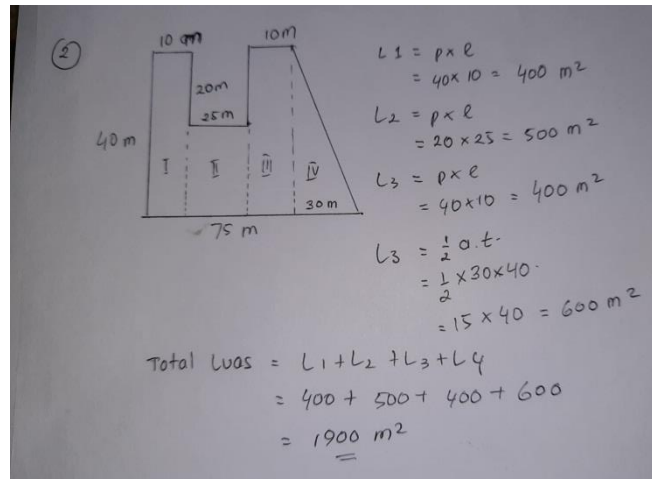 2
10 m
10m
20m
25m
40m
I
II
III
IV
30m
75 m
L1 = p x l
= 40x 10 = 400 m²
L2 = p x l
= 20 x 25 = 500 m²
L3 = p x l
= 40x10 = 400 m²
L3 = 1/2 a.t.
= 1/2 x 30x40.
= 15 x 40 = 600 m²
Total Luas = L1+L2 +L3+L4
= 400 + 500 + 400 + 600
= 1900 m²